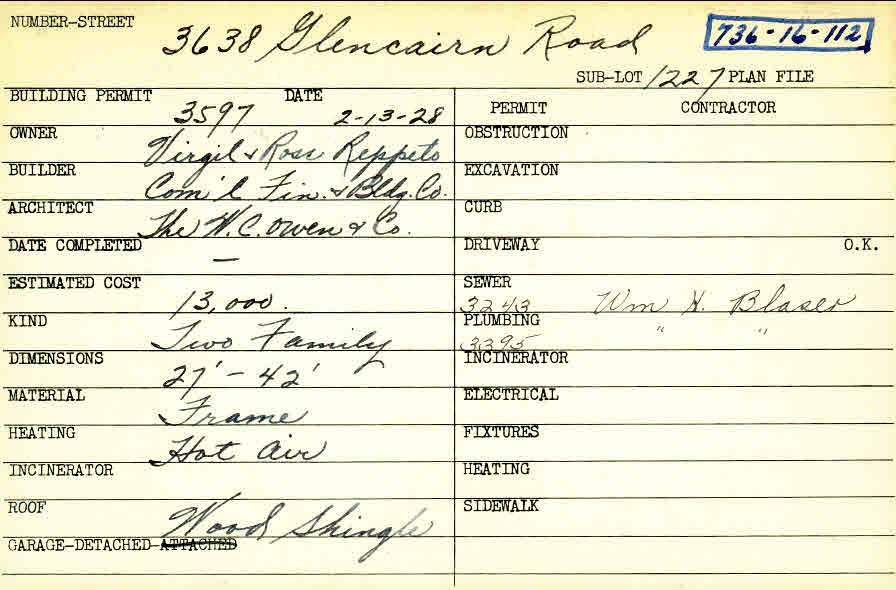 NUMBER-STREET 3638 Glencairn Road 736-16-112
SUB-LOT 1227 PLAN FILE
BUILDING PERMIT 3597 DATE 2-13-28
OWNER Virgil & Rose Reppeto
BUILDER Com'l Fin. & Bldg. Co.
ARCHITECT The W.C. Owen & Co.
DATE COMPLETED —
ESTIMATED COST 13,000.
KIND Two Family
DIMENSIONS 27' - 42'
MATERIAL Frame
HEATING Hot Air
INCINERATOR
ROOF Wood Shingle
GARAGE-DETACHED-ATTACHED
PERMIT CONTRACTOR
OBSTRUCTION
EXCAVATION
CURB
DRIVEWAY O.K.
SEWER 3243 Wm H. Blaser
PLUMBING 3395 " "
INCINERATOR
ELECTRICAL
FIXTURES
HEATING
SIDEWALK